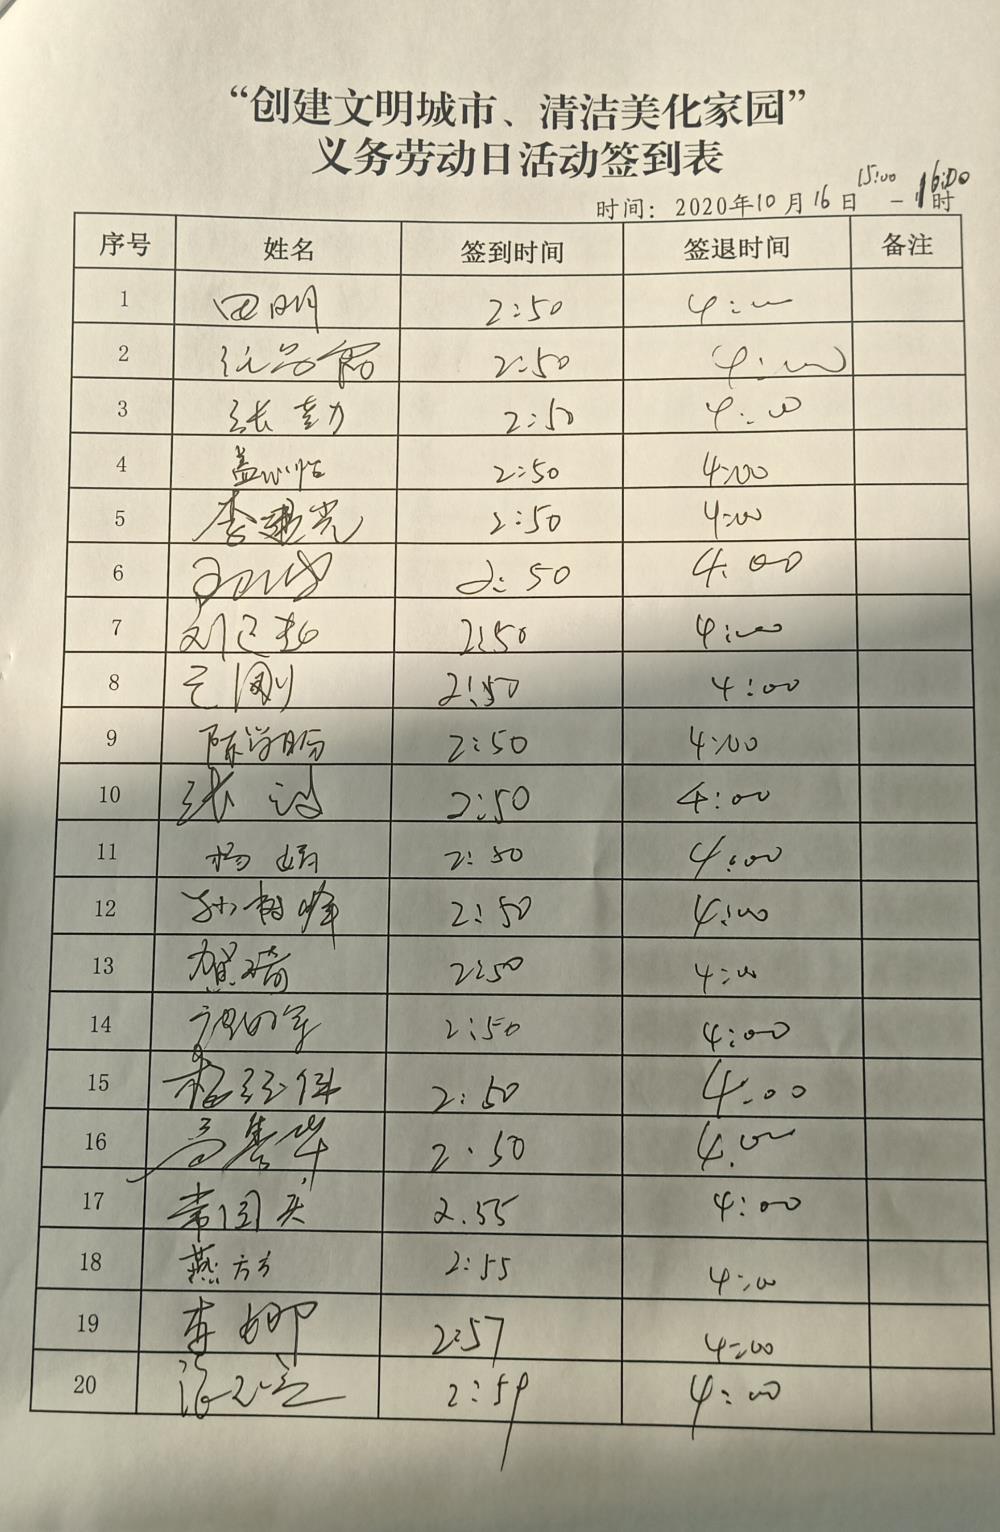 “创建文明城市、清洁美化家园”
义务劳动日活动签到表
时间：2020年10月16日 15:00 - 16:00时
序号 姓名 签到时间 签退时间 备注
1 田明 2:50 4:00
2 2:50 4:00
3 张 2:50 4:00
4 2:50 4:00
5 李建光 2:50 4:00
6 2:50 4:00
7 刘 2:50 4:00
8 刚 2:50 4:00
9 陈 2:50 4:00
10 张 2:50 4:00
11 杨娟 2:50 4:00
12 孙树峰 2:50 4:00
13 贺琦 2:50 4:00
14 2:50 4:00
15 2:50 4:00
16 高 华 2:50 4.00
17 常国庆 2.55 4:00
18 燕方方 2:55 4:00
19 李娜 2:57 4:00
20 2:59 4:00